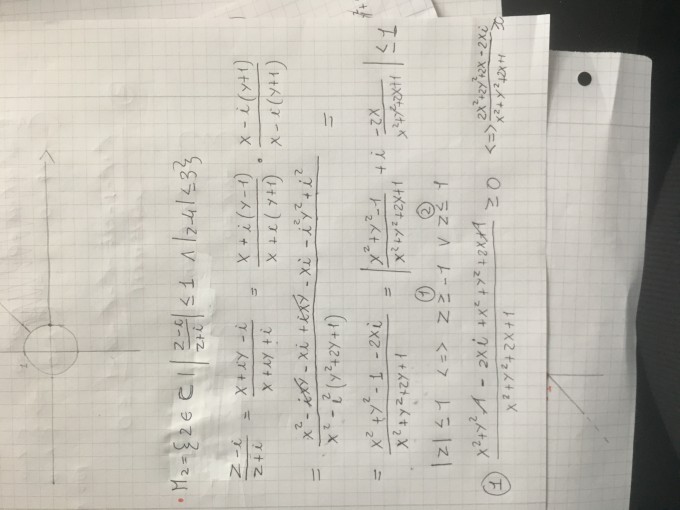 M₂ = {z ∈ ℂ | |(z-i)/(z+i)| ≤ 1 ∧ |z-i| ≤ 3}
(z-i)/(z+i) = (x+iy-i)/(x+iy+i) = (x+i(y-1))/(x+i(y+1)) · (x-i(y+1))/(x-i(y+1))
= (x²-ixy-xi+ixy-xi-i²y²+i²)/(x²-i²(y²+2y+1)) =
= (x²+y²-1-2xi)/(x²+y²+2y+1) = |(x²+y²-1)/(x²+y²+2x+1) + i (-2x)/(x²+y²+2x+1)| ≤ 1
|z| ≤ 1 <=> ① z ≥ -1 ∨ ② z ≤ 1
① (x²+y²-1-2xi+x²+y²+2x+1)/(x²+y²+2x+1) ≥ 0 <=> (2x²+2y²+2x-2xi)/(x²+y²+2x+1)